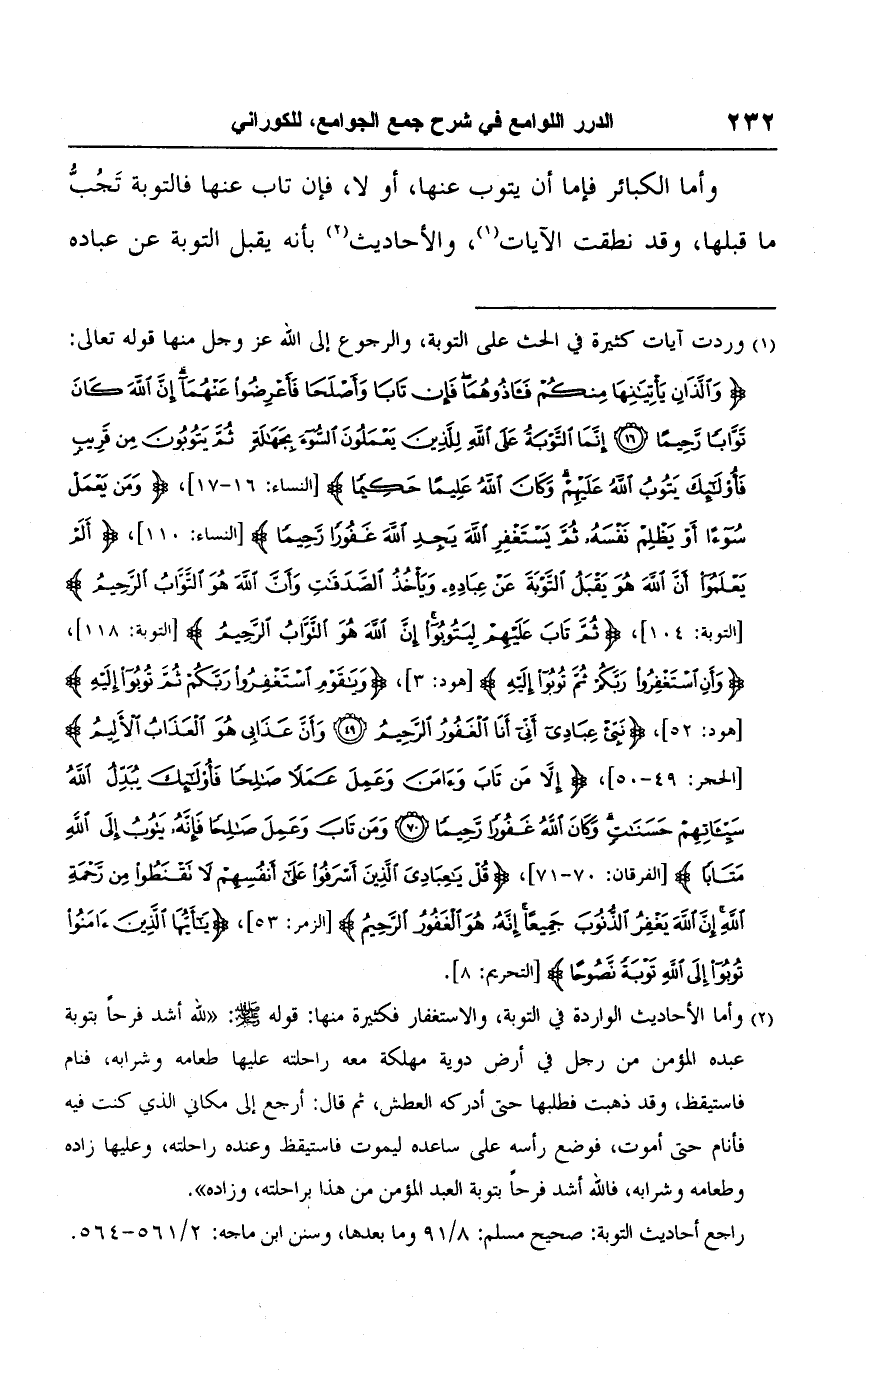 ٢٣٢ الدرر اللوامع في شرح جمع الجوامع، للكوراني
وأما الكبائر فإما أن يتوب عنها، أو لا، فإن تاب عنها فالتوبة تَجُبُّ
ما قبلها، وقد نطقت الآيات(١)، والأحاديث(٢) بأنه يقبل التوبة عن عباده
(١) وردت آيات كثيرة في الحث على التوبة، والرجوع إلى الله عز وجل منها قوله تعالى:
﴿ وَٱلَّذَانِ يَأْتِيَٰنِهَا مِنكُمْ فَـَٔاذُوهُمَا ۖ فَإِن تَابَا وَأَصْلَحَا فَأَعْرِضُوا۟ عَنْهُمَآ ۗ إِنَّ ٱللَّهَ كَانَ
تَوَّابًا رَّحِيمًا ١٦ إِنَّمَا ٱلتَّوْبَةُ عَلَى ٱللَّهِ لِلَّذِينَ يَعْمَلُونَ ٱلسُّوٓءَ بِجَهَٰلَةٍ ثُمَّ يَتُوبُونَ مِن قَرِيبٍ
فَأُو۟لَٰٓئِكَ يَتُوبُ ٱللَّهُ عَلَيْهِمْ ۗ وَكَانَ ٱللَّهُ عَلِيمًا حَكِيمًا ﴾ [النساء: ١٦-١٧]، ﴿ وَمَن يَعْمَلْ
سُوٓءًا أَوْ يَظْلِمْ نَفْسَهُۥ ثُمَّ يَسْتَغْفِرِ ٱللَّهَ يَجِدِ ٱللَّهَ غَفُورًا رَّحِيمًا ﴾ [النساء: ١١٠]، ﴿ أَلَمْ
يَعْلَمُوٓا۟ أَنَّ ٱللَّهَ هُوَ يَقْبَلُ ٱلتَّوْبَةَ عَنْ عِبَادِهِۦ وَيَأْخُذُ ٱلصَّدَقَٰتِ وَأَنَّ ٱللَّهَ هُوَ ٱلتَّوَّابُ ٱلرَّحِيمُ ﴾
[التوبة: ١٠٤]، ﴿ ثُمَّ تَابَ عَلَيْهِمْ لِيَتُوبُوٓا۟ ۚ إِنَّ ٱللَّهَ هُوَ ٱلتَّوَّابُ ٱلرَّحِيمُ ﴾ [التوبة: ١١٨]،
﴿ وَأَنِ ٱسْتَغْفِرُوا۟ رَبَّكُمْ ثُمَّ تُوبُوٓا۟ إِلَيْهِ ﴾ [هود: ٣]، ﴿ وَيَٰقَوْمِ ٱسْتَغْفِرُوا۟ رَبَّكُمْ ثُمَّ تُوبُوٓا۟ إِلَيْهِ ﴾
[هود: ٥٢]، ﴿ نَبِّئْ عِبَادِىٓ أَنِّىٓ أَنَا ٱلْغَفُورُ ٱلرَّحِيمُ ٤٩ وَأَنَّ عَذَابِى هُوَ ٱلْعَذَابُ ٱلْأَلِيمُ ﴾
[الحجر: ٤٩-٥٠]، ﴿ إِلَّا مَن تَابَ وَءَامَنَ وَعَمِلَ عَمَلًا صَٰلِحًا فَأُو۟لَٰٓئِكَ يُبَدِّلُ ٱللَّهُ
سَيِّـَٔاتِهِمْ حَسَنَٰتٍ ۗ وَكَانَ ٱللَّهُ غَفُورًا رَّحِيمًا ٧٠ وَمَن تَابَ وَعَمِلَ صَٰلِحًا فَإِنَّهُۥ يَتُوبُ إِلَى ٱللَّهِ
مَتَابًا ﴾ [الفرقان: ٧٠-٧١]، ﴿ قُلْ يَٰعِبَادِىَ ٱلَّذِينَ أَسْرَفُوا۟ عَلَىٰٓ أَنفُسِهِمْ لَا تَقْنَطُوا۟ مِن رَّحْمَةِ
ٱللَّهِ ۚ إِنَّ ٱللَّهَ يَغْفِرُ ٱلذُّنُوبَ جَمِيعًا ۚ إِنَّهُۥ هُوَ ٱلْغَفُورُ ٱلرَّحِيمُ ﴾ [الزمر: ٥٣]، ﴿ يَٰٓأَيُّهَا ٱلَّذِينَ ءَامَنُوا۟
تُوبُوٓا۟ إِلَى ٱللَّهِ تَوْبَةً نَّصُوحًا ﴾ [التحريم: ٨].
(٢) وأما الأحاديث الواردة في التوبة، والاستغفار فكثيرة منها: قوله ﷺ: «لله أشد فرحاً بتوبة
عبده المؤمن من رجل في أرض دوية مهلكة معه راحلته عليها طعامه وشرابه، فنام
فاستيقظ، وقد ذهبت فطلبها حتى أدركه العطش، ثم قال: أرجع إلى مكاني الذي كنت فيه
فأنام حتى أموت، فوضع رأسه على ساعده ليموت فاستيقظ وعنده راحلته، وعليها زاده
وطعامه وشرابه، فالله أشد فرحاً بتوبة العبد المؤمن من هذا براحلته، وزاده».
راجع أحاديث التوبة: صحيح مسلم: ٩١/٨ وما بعدها، وسنن ابن ماجه: ٥٦١/٢-٥٦٤.